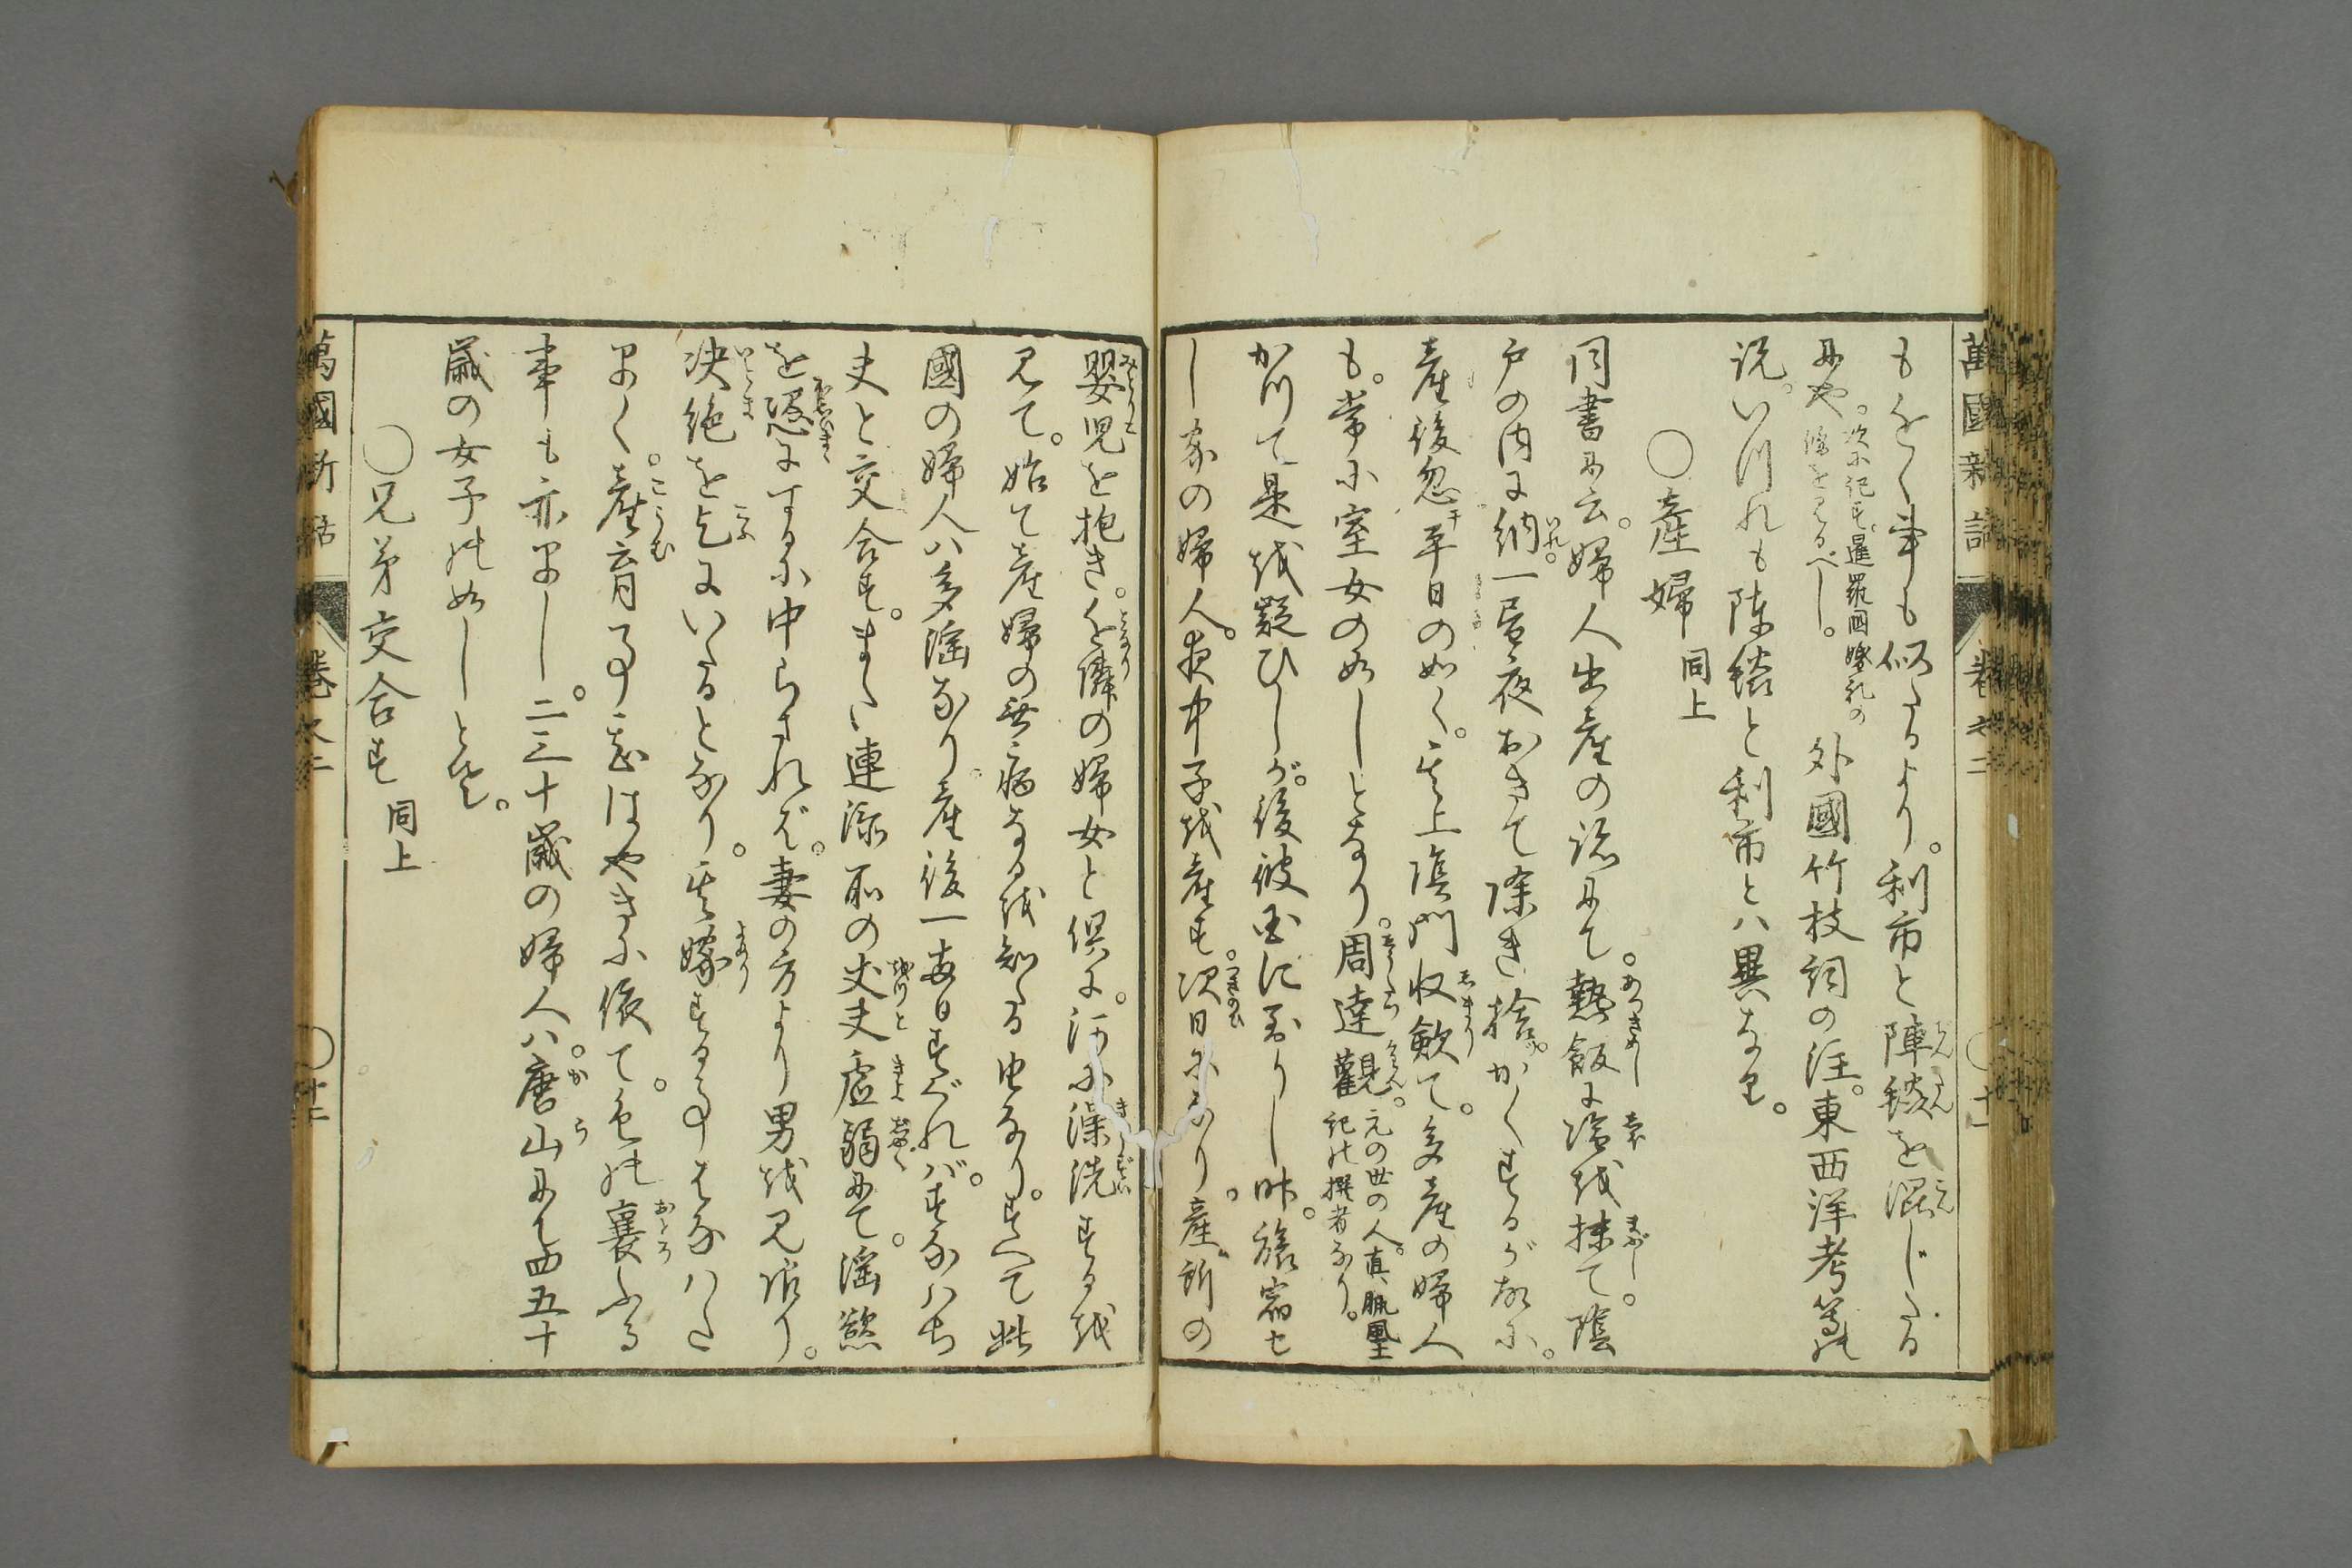 萬國新話 巻之二 〇十一
もをく事も似たるより。利市と陣毯を混じたる
にや。次に記す。暹羅國婚礼の
條をみるべし。外國竹枝詞の注。東西洋考等の
説。いづれも陳毯と利市とハ異なり。
〇産婦 同上
同書に云。婦人出産の説にて。熱飯に塩を抹て。陰
戸の内に納。一昼夜おきて除き捨。かくするが故に。
産後忽平日の如く。其上陰門收歛て。多産の婦人
も。常に室女の如しとなり。周達觀元の世の人。真臘風土
記の撰者なり。
かつて是を疑ひしが。後彼国に至りし時。旅宿せ
し家の婦人。夜中子を産す。次日になり。産所の
嬰児を抱き。近隣の婦女と倶に。河に澡洗するを
見て。始て産婦の無病なるを知たる由なり。すべて此
國の婦人ハ多淫なり。産後一両日すぐれバ。すなハち
夫と交合す。また連添所の丈夫虚弱にて。淫慾
を恣にするに中らざれば。妻の方より男を見限り。
决絶を乞にいたるとなり。其嫁する事もなハだ
早く。産育る事もはやきに依て。色の襄ふる
事も亦早し。二三十歳の婦人ハ。唐山にて四五十
歳の女子の如しとぞ。
〇兄弟交合す 同上
萬國新話 巻之二 〇十二